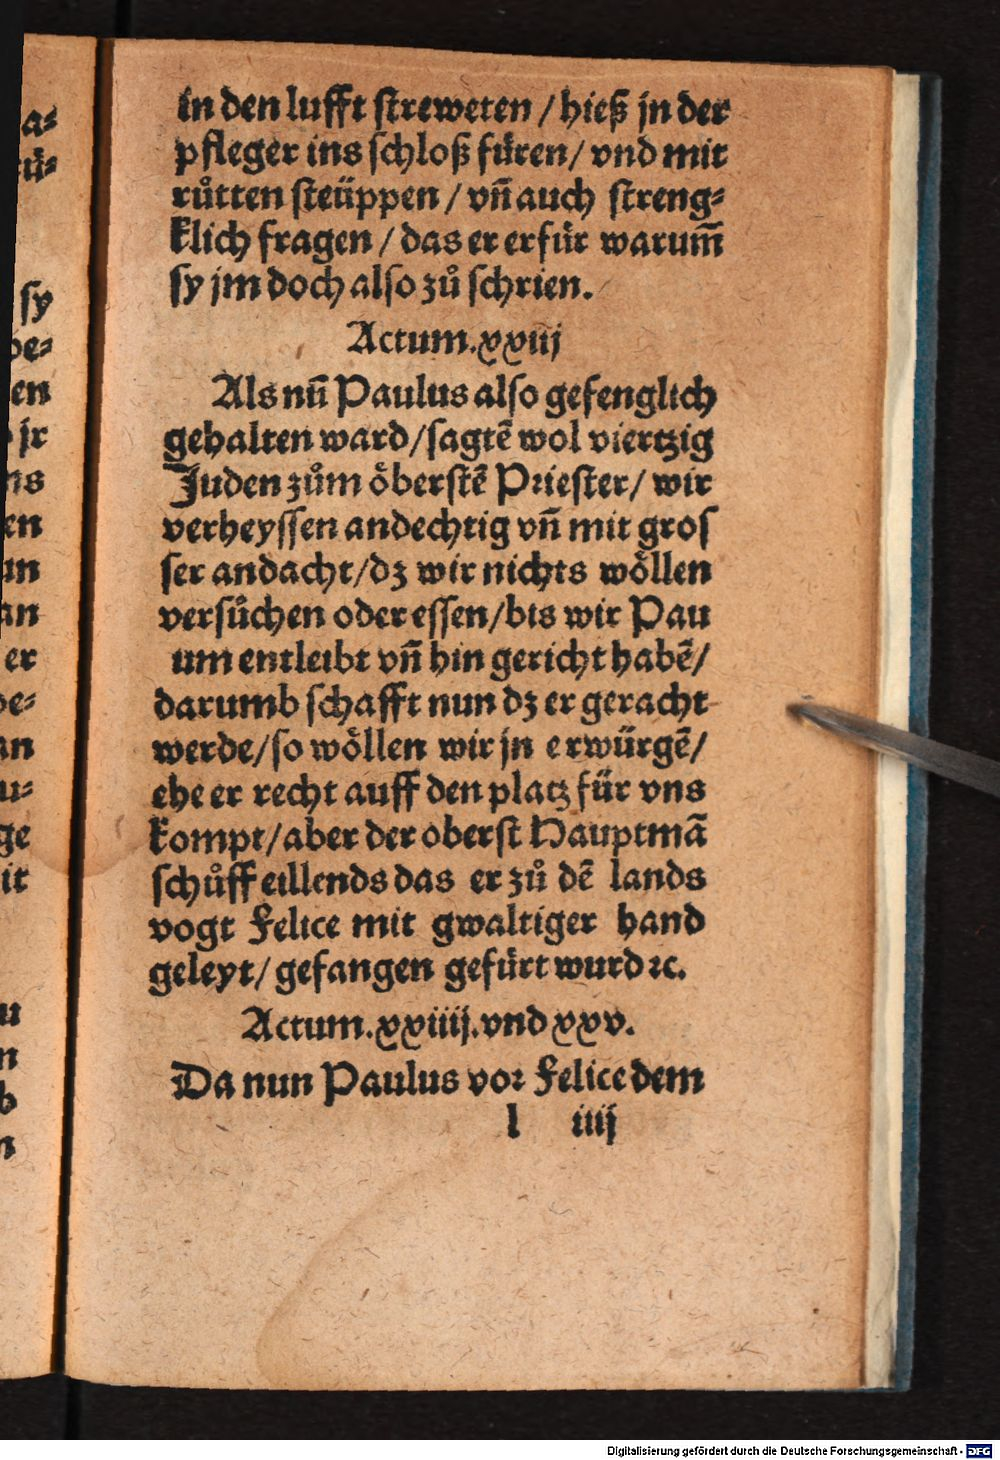 in den lufft streweten / hieß jn der
pfleger ins schloß füren / vnd mit
růtten steüppen / vñ auch streng⸗
klich fragen / das er erfür warum̃
sy jm doch also zů schrien.
Actum.xxiij
Als nũ Paulus also gefenglich
gehalten ward / sagtẽ wol viertzig
Juden zům öberstẽ Priester / wir
verheyssen andechtig vñ mit gros
ser andacht / dz wir nichts wöllen
versůchen oder essen / bis wir Pau
um entleibt vñ hin gericht habẽ /
darumb schafft nun dz er geracht
werde / so wöllen wir jn erwürgẽ /
ehe er recht auff den platz für vns
kompt / aber der oberst Hauptmã
schůff eillends das er zů dẽ lands
vogt Felice mit gwaltiger hand
geleyt / gefangen gefürt wurd ꝛc.
Actum.xxiiij.vnd xxv.
Da nun Paulus vor Felice dem
l iiij
a⸗
sy
en
jr
ns
en
an
er
an
ge
it
Digitalisierung gefördert durch die Deutsche Forschungsgemeinschaft - DFG